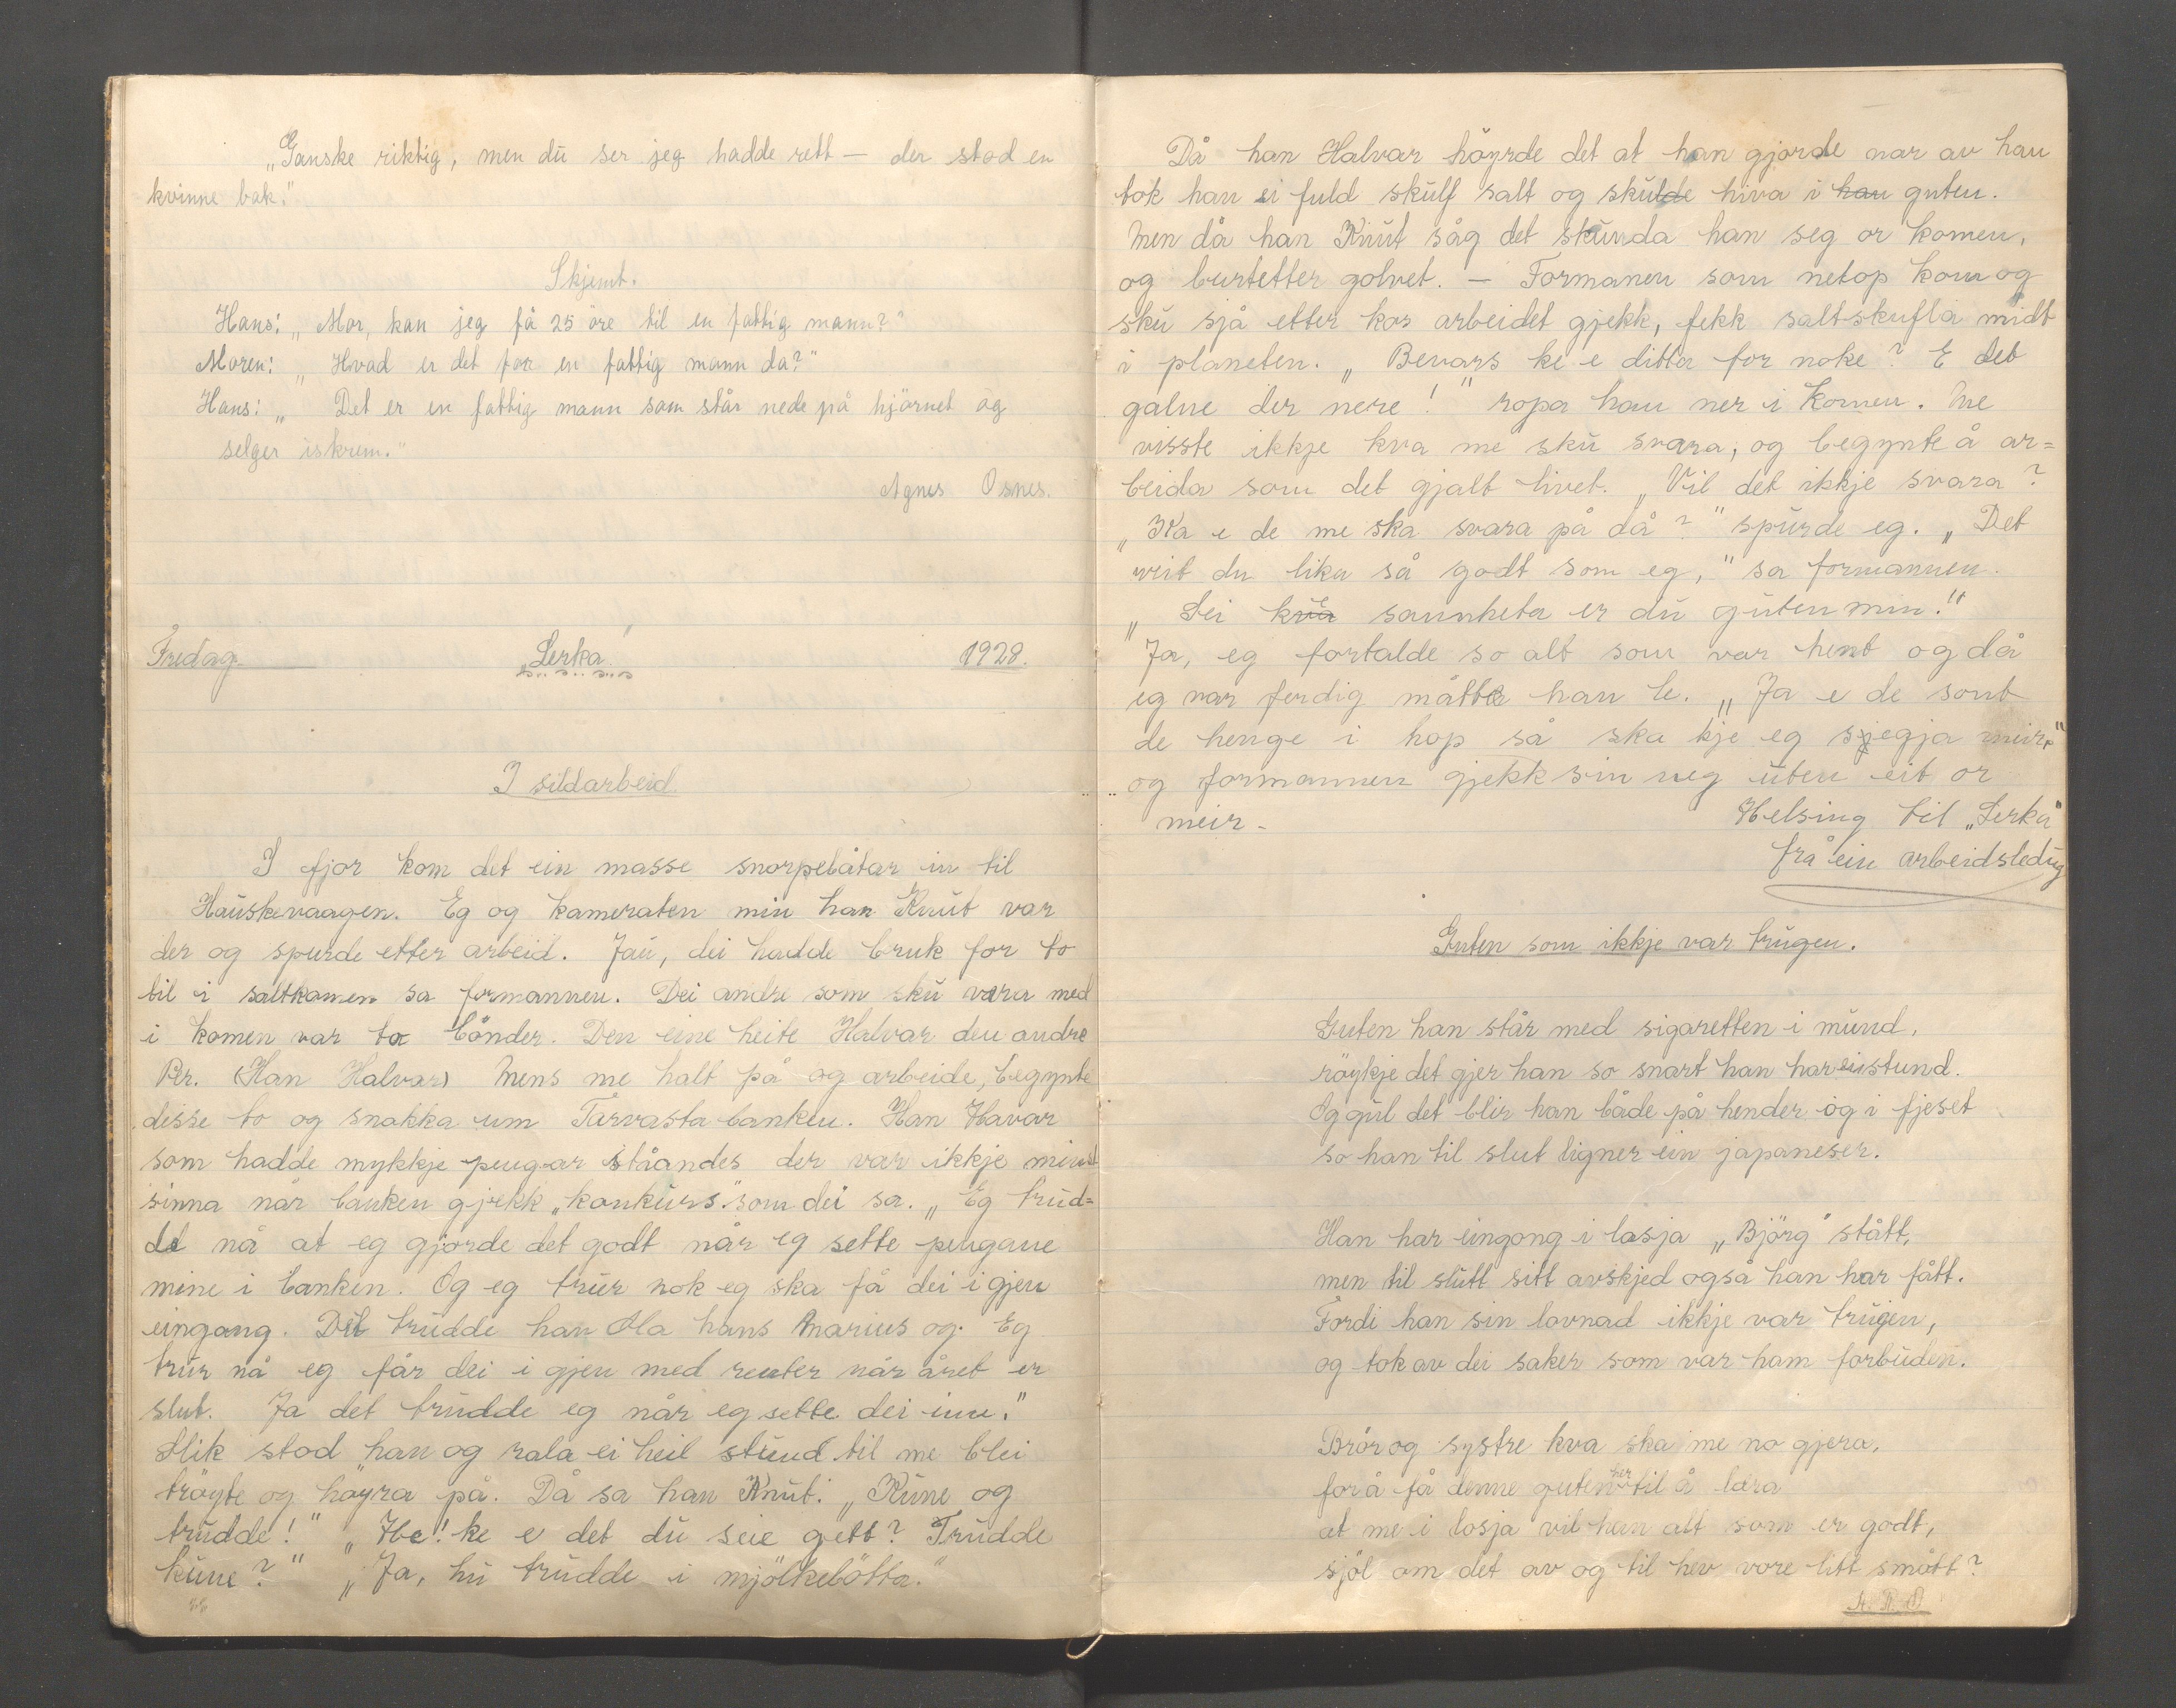 „Ganske riktig, men du ser jeg hadde rett — der stod en
kvinne bak."
Skjemt.
Hans: „Mor, kan jeg få 25 öre til en fattig mann?"
Moren: „Hvad er det for en fattig mann da?"
Hans: „Det er en fattig mann som står nede på hjörnet og
selger iskrem."
Agnes Osnes.
Fredag. „Lerka" 1928.
I sildarbeid.
I fjor kom det ein masse snorpebåtar in til
Hauskevaagen. Eg og kameraten min han Knut var
der og spurde etter arbeid. Jau, dei hadde bruk for to
til i saltkomen sa formannen. Dei andre som sku vera med
i komen var to bönder. Den eine heite Halvar den andre
Per. (Han Halvar) Mens me halt på og arbeide, begynte
disse to og snakka um Tarvasta banken. Han Havar
som hadde mykkje pengar ståandes der var ikkje minst
sinna når banken gjekk „konkurs." som dei sa. „Eg trud=
de nå at eg gjorde det godt når eg sette pengane
mine i banken. Og eg trur nok eg ska få dei i gjen
eingang. Det trudde han Ola hans Marius og. Eg
trur nå eg får dei i gjen med renter når året er
slut. Ja det trudde eg når eg sette dei inn."
Slik stod han og rala ei heil stund til me blei
tröyte og höyra på. Då sa han Knut: „Kune og
trudde!" „He! ke e det du seie gett? Trudde
kune?" „Ja, hu trudde i mjölkebötta."
Då han Halvar höyrde det at han gjorde nar av han
tok han ei fuld skulf salt og skulde hiva i han guten.
Men då han Knut såg det skunda han seg or komen,
og burtetter golvet. — Formanen som netop kom og
sku sjå etter kos arbeidet gjekk, fekk saltskufla midt
i planeten. „Bevars ke e ditta for noke? E det
galne der nere!" ropa han ner i komen. Me
visste ikkje kva me sku svara, og begynte å ar=
beida som det gjalt livet. „Vil det ikkje svara?
„Ka e de me ska svara på då?" spurde eg. „Det
veit du lika så godt som eg," sa formannen.
„Sei kva sannheta er du guten min."
Ja, eg fortalde so alt som var hent og då
eg var ferdig måtte han le. „Ja e de sont
de henge i hop så ska kje eg sjegja meir,"
og formannen gjekk sin veg uten eit or
meir –
Helsing til „Lerka"
frå ein arbeidsledug
Guten som ikkje var trugen.
Guten han står med sigaretten i mund,
röykje det gjer han so snart han har ei stund.
Og gul det blir han både på hender og i fjeset
so han til slut ligner ein japaneser.
Han har eingong i losja „Björg" stått,
men til slutt sitt avskjed også han har fått.
Fordi han sin lovnad ikkje var trugen,
og tok av dei saker som var ham forbuden.
Brör og systre kva ska me no gjera,
for å få denne guten her til å læra
at me i losja vil han alt som er godt,
sjöl om det av og til hev vore litt smått?
A. R. O